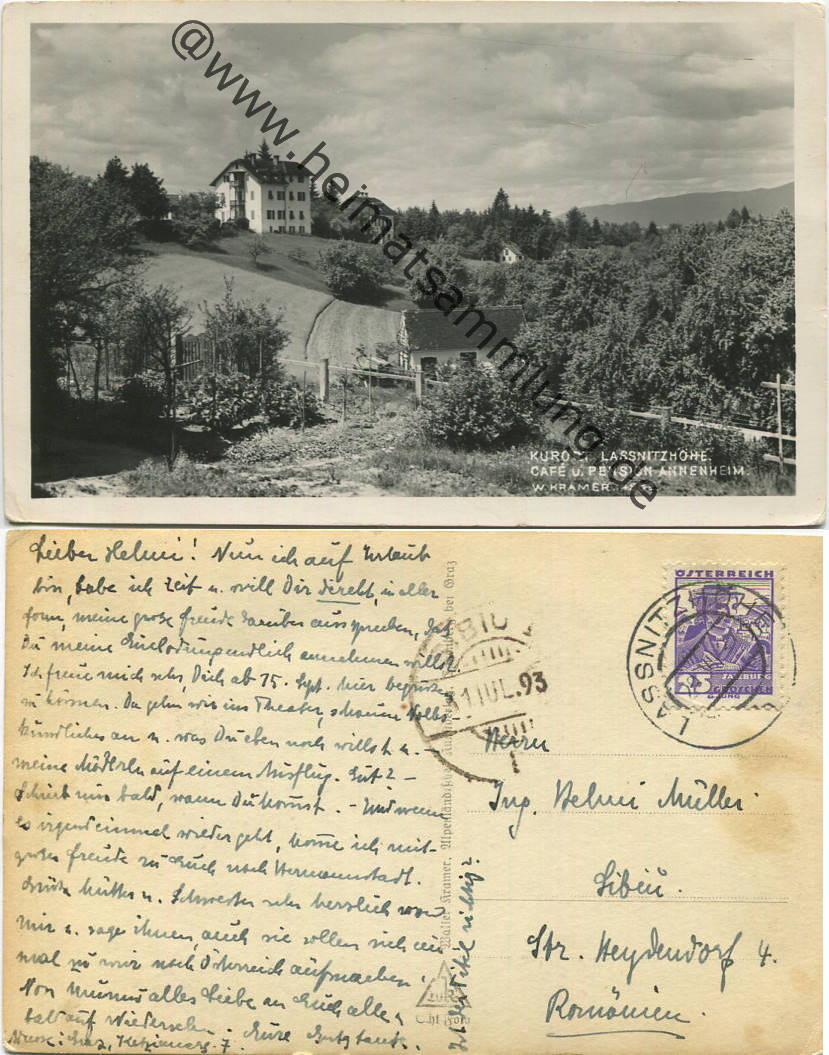 @www.heimatsammlung.de
KURORT LASSNITZHÖHE.
CAFÉ U. PENSION ANNENHEIM.
W. KRAMER
Lieber Helmi! Nun ich auf Urlaub
bin, habe ich Zeit u. will Dir direkt, in aller
Form, meine große Freude darüber aussprechen, daß
Du meine Einladung endlich annehmen willst.
Ich freue mich sehr, Dich ab 15. Sept. hier begrüßen
zu können. Da gehn wir ins Theater, schauen Volks
kundliches an u. was Du eben noch willst u. –
meine Mödlrln auf einem Ausflug. Gut? –
Schreib mir bald, wann Du kommst. – Und wenn
es irgend einmal wieder geht, komme ich mit
großer Freude zu Euch nach Hermannstadt.
Grüße Mutter u. Schwester sehr herzlich von
mir u. sage ihnen, auch sie sollen sich ein
mal zu mir nach Österreich aufmachen.
Nun alles Liebe an Euch alle,
bald auf Wiedersehn. Eure
Graz, 7.
Walter Kramer, bei Graz
Ist der Titel richtig?
Echt Foto
SIBIU
1 IUL. 93
ÖSTERREICH
SALZBURG
GROSCHEN
LASSNITZHÖHE
Herrn
Ing. Helmi Müller
Sibiu.
Str. Heydendorf 4.
Romänien.